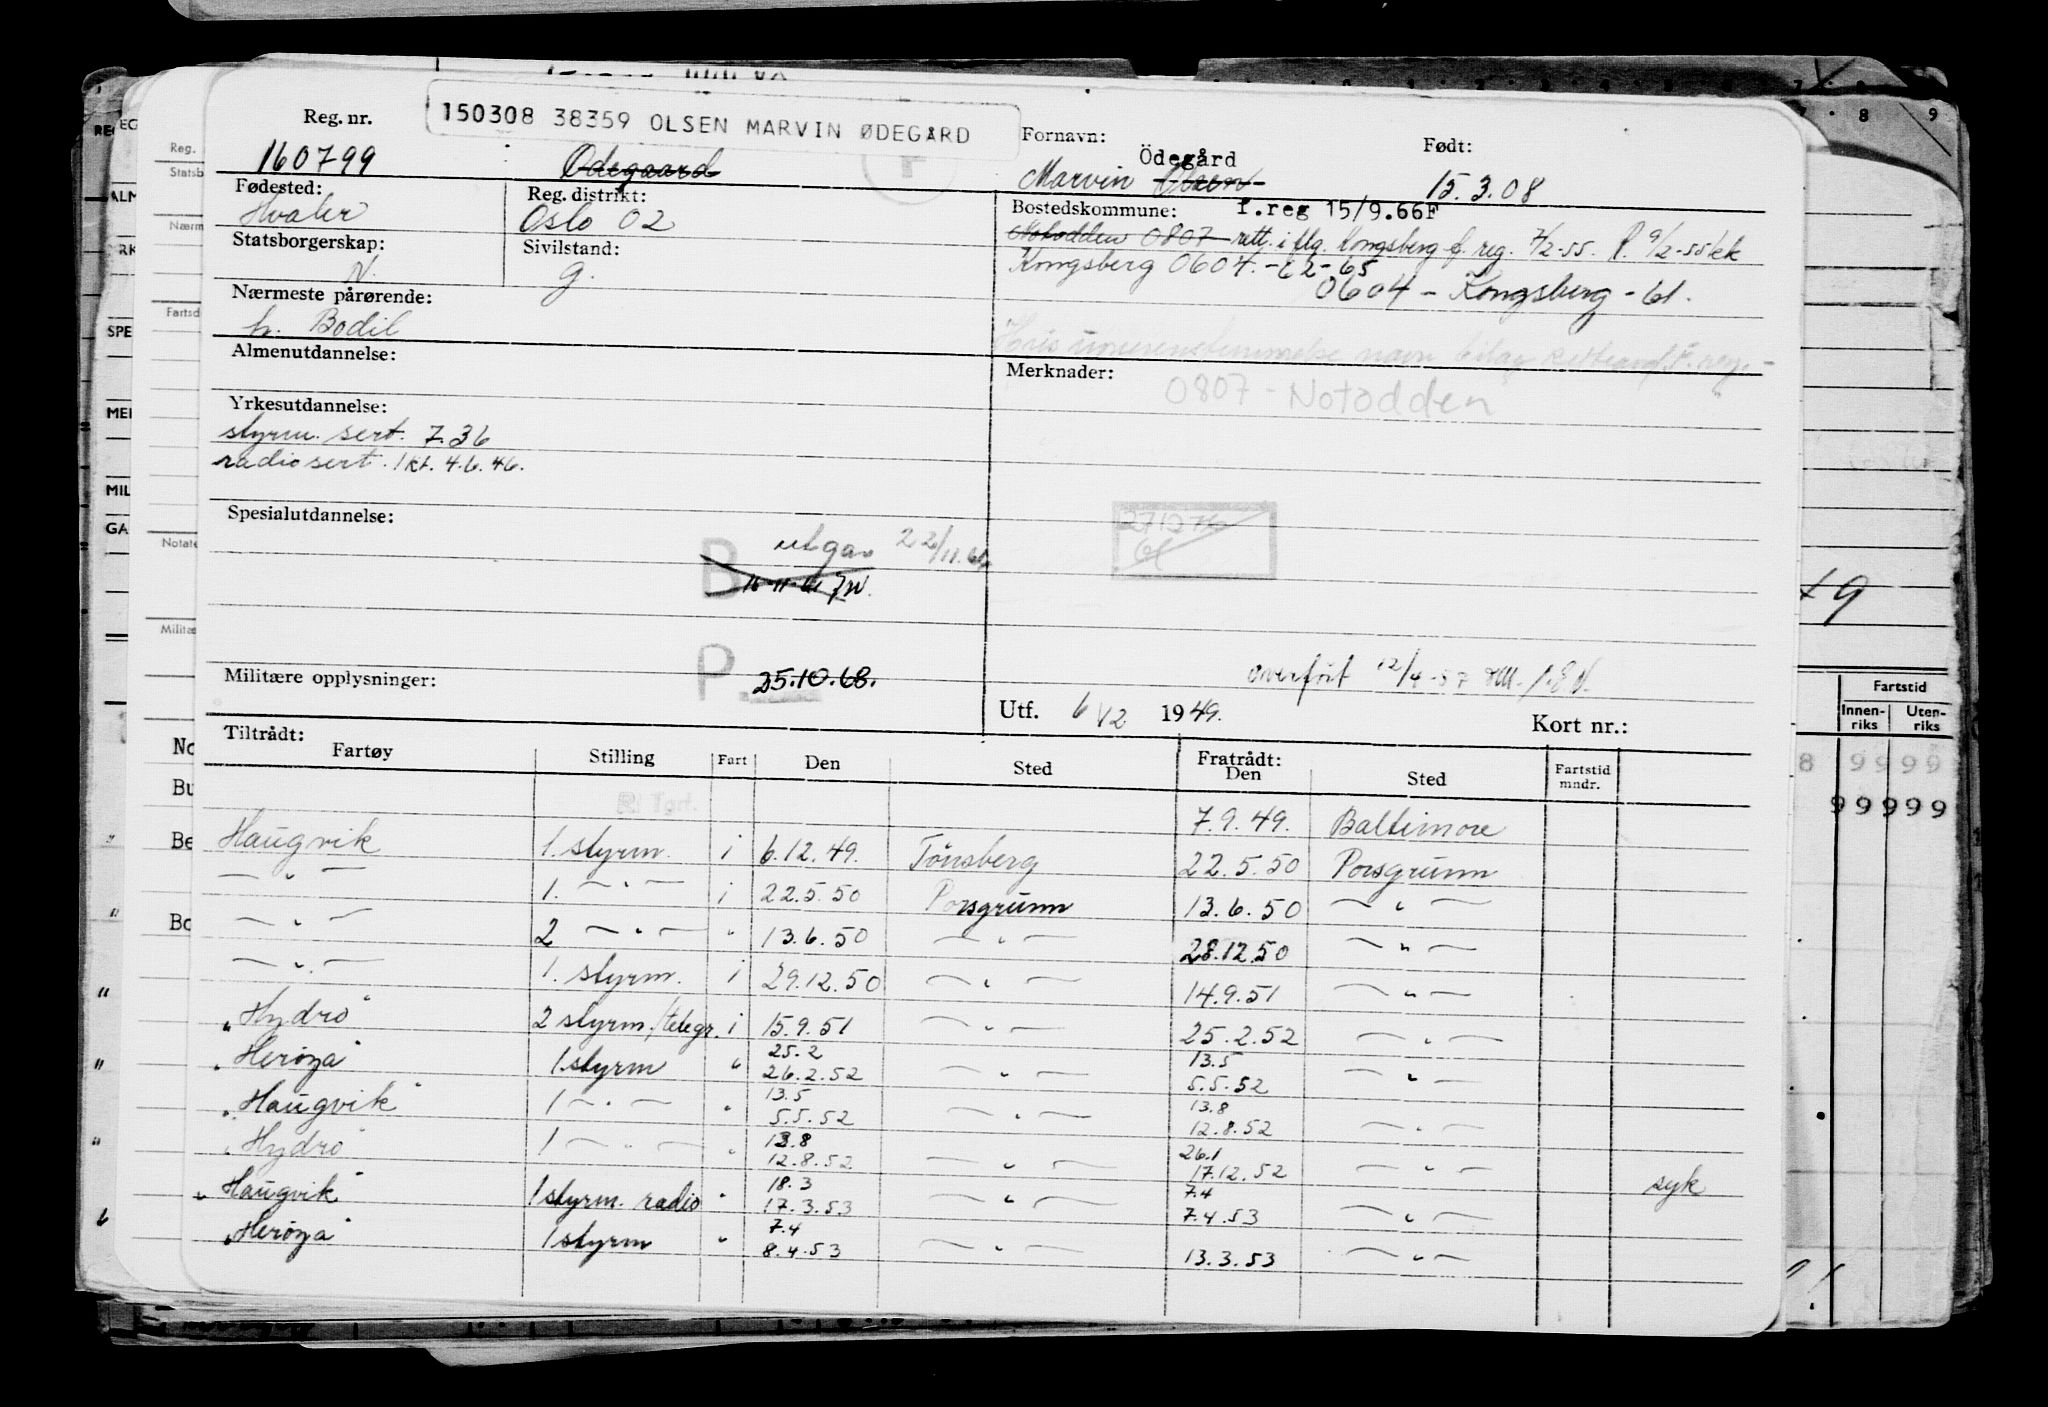 Reg. nr.
150308 38359 OLSEN MARVIN ØDEGÅRD
Fornavn:
Født:
160799
Odegaard
Marvin Olsen
Ödegård
15.3.08
Fødested:
Reg. distrikt:
Bostedskommune:
f.reg 15/9.66F
Hvaler
Oslo 02
Notodden 0807 rett. i flg. Kongsberg f. reg. 7/2-55. P. 9/2-55
Statsborgerskap:
Sivilstand:
Kongsberg 0604.-62-65
N.
g.
0604 - Kongsberg - 61.
Nærmeste pårørende:
h. Bodil
Almenutdannelse:
Merknader:
0807 - Notodden
Yrkesutdannelse:
styrm. sert. 7.36
radiosert. 1 kl. 4.6.46.
Spesialutdannelse:
B
utgår 22/11.61
16-11-61
P
25.10.68.
Militære opplysninger:
overført 12/4-57
Utf. 6/12 1949.
Kort nr.:
Tiltrådt:
Fartøy Stilling Fart Den Sted Fratrådt: Den Sted Fartstid mndr.
7.9.49. Baltimore
Haugvik 1. styrm. i 6.12.49. Tönsberg 22.5.50 Porsgrunn
— " — 1. — " — i 22.5.50 Porsgrunn 13.6.50 — " —
— " — 2 — " — " 13.6.50 — " — 28.12.50 — " —
— " — 1. styrm. i 29.12.50 — " — 14.9.51 — " —
"Hydro" 2 styrm./telegr. i 15.9.51 — " — 25.2.52 — " —
25.2 13.5
"Herøya" 1 styrm " 26.2.52 — " — 5.5.52 — " —
13.5 13.8
"Haugvik" 1 — " — " 5.5.52 — " — 12.8.52 — " —
13.8 26.1
"Hydro" 1 — " — " 12.8.52 — " — 17.12.52 — " — syk
18.3 7.4
"Haugvik" 1 styrm. radio " 17.3.53 — " — 7.4.53 — " —
7.4
"Herøya" 1 styrm " 8.4.53 — " — 13.3.53 — " —
Fartstid
Innen-riks
Uten-riks
8 9999
99999